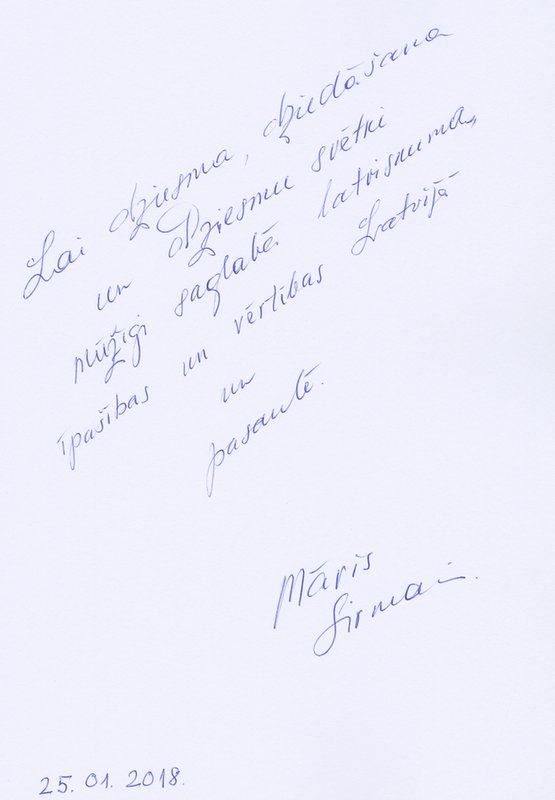 Lai dziesma, dziedāšana
un Dziesmu svētki
mūžīgi saglabā latviskuma,
īpašības un vērtības Latvijā
un
pasaulē.
Māris
Sirmais.
25.01.2018.